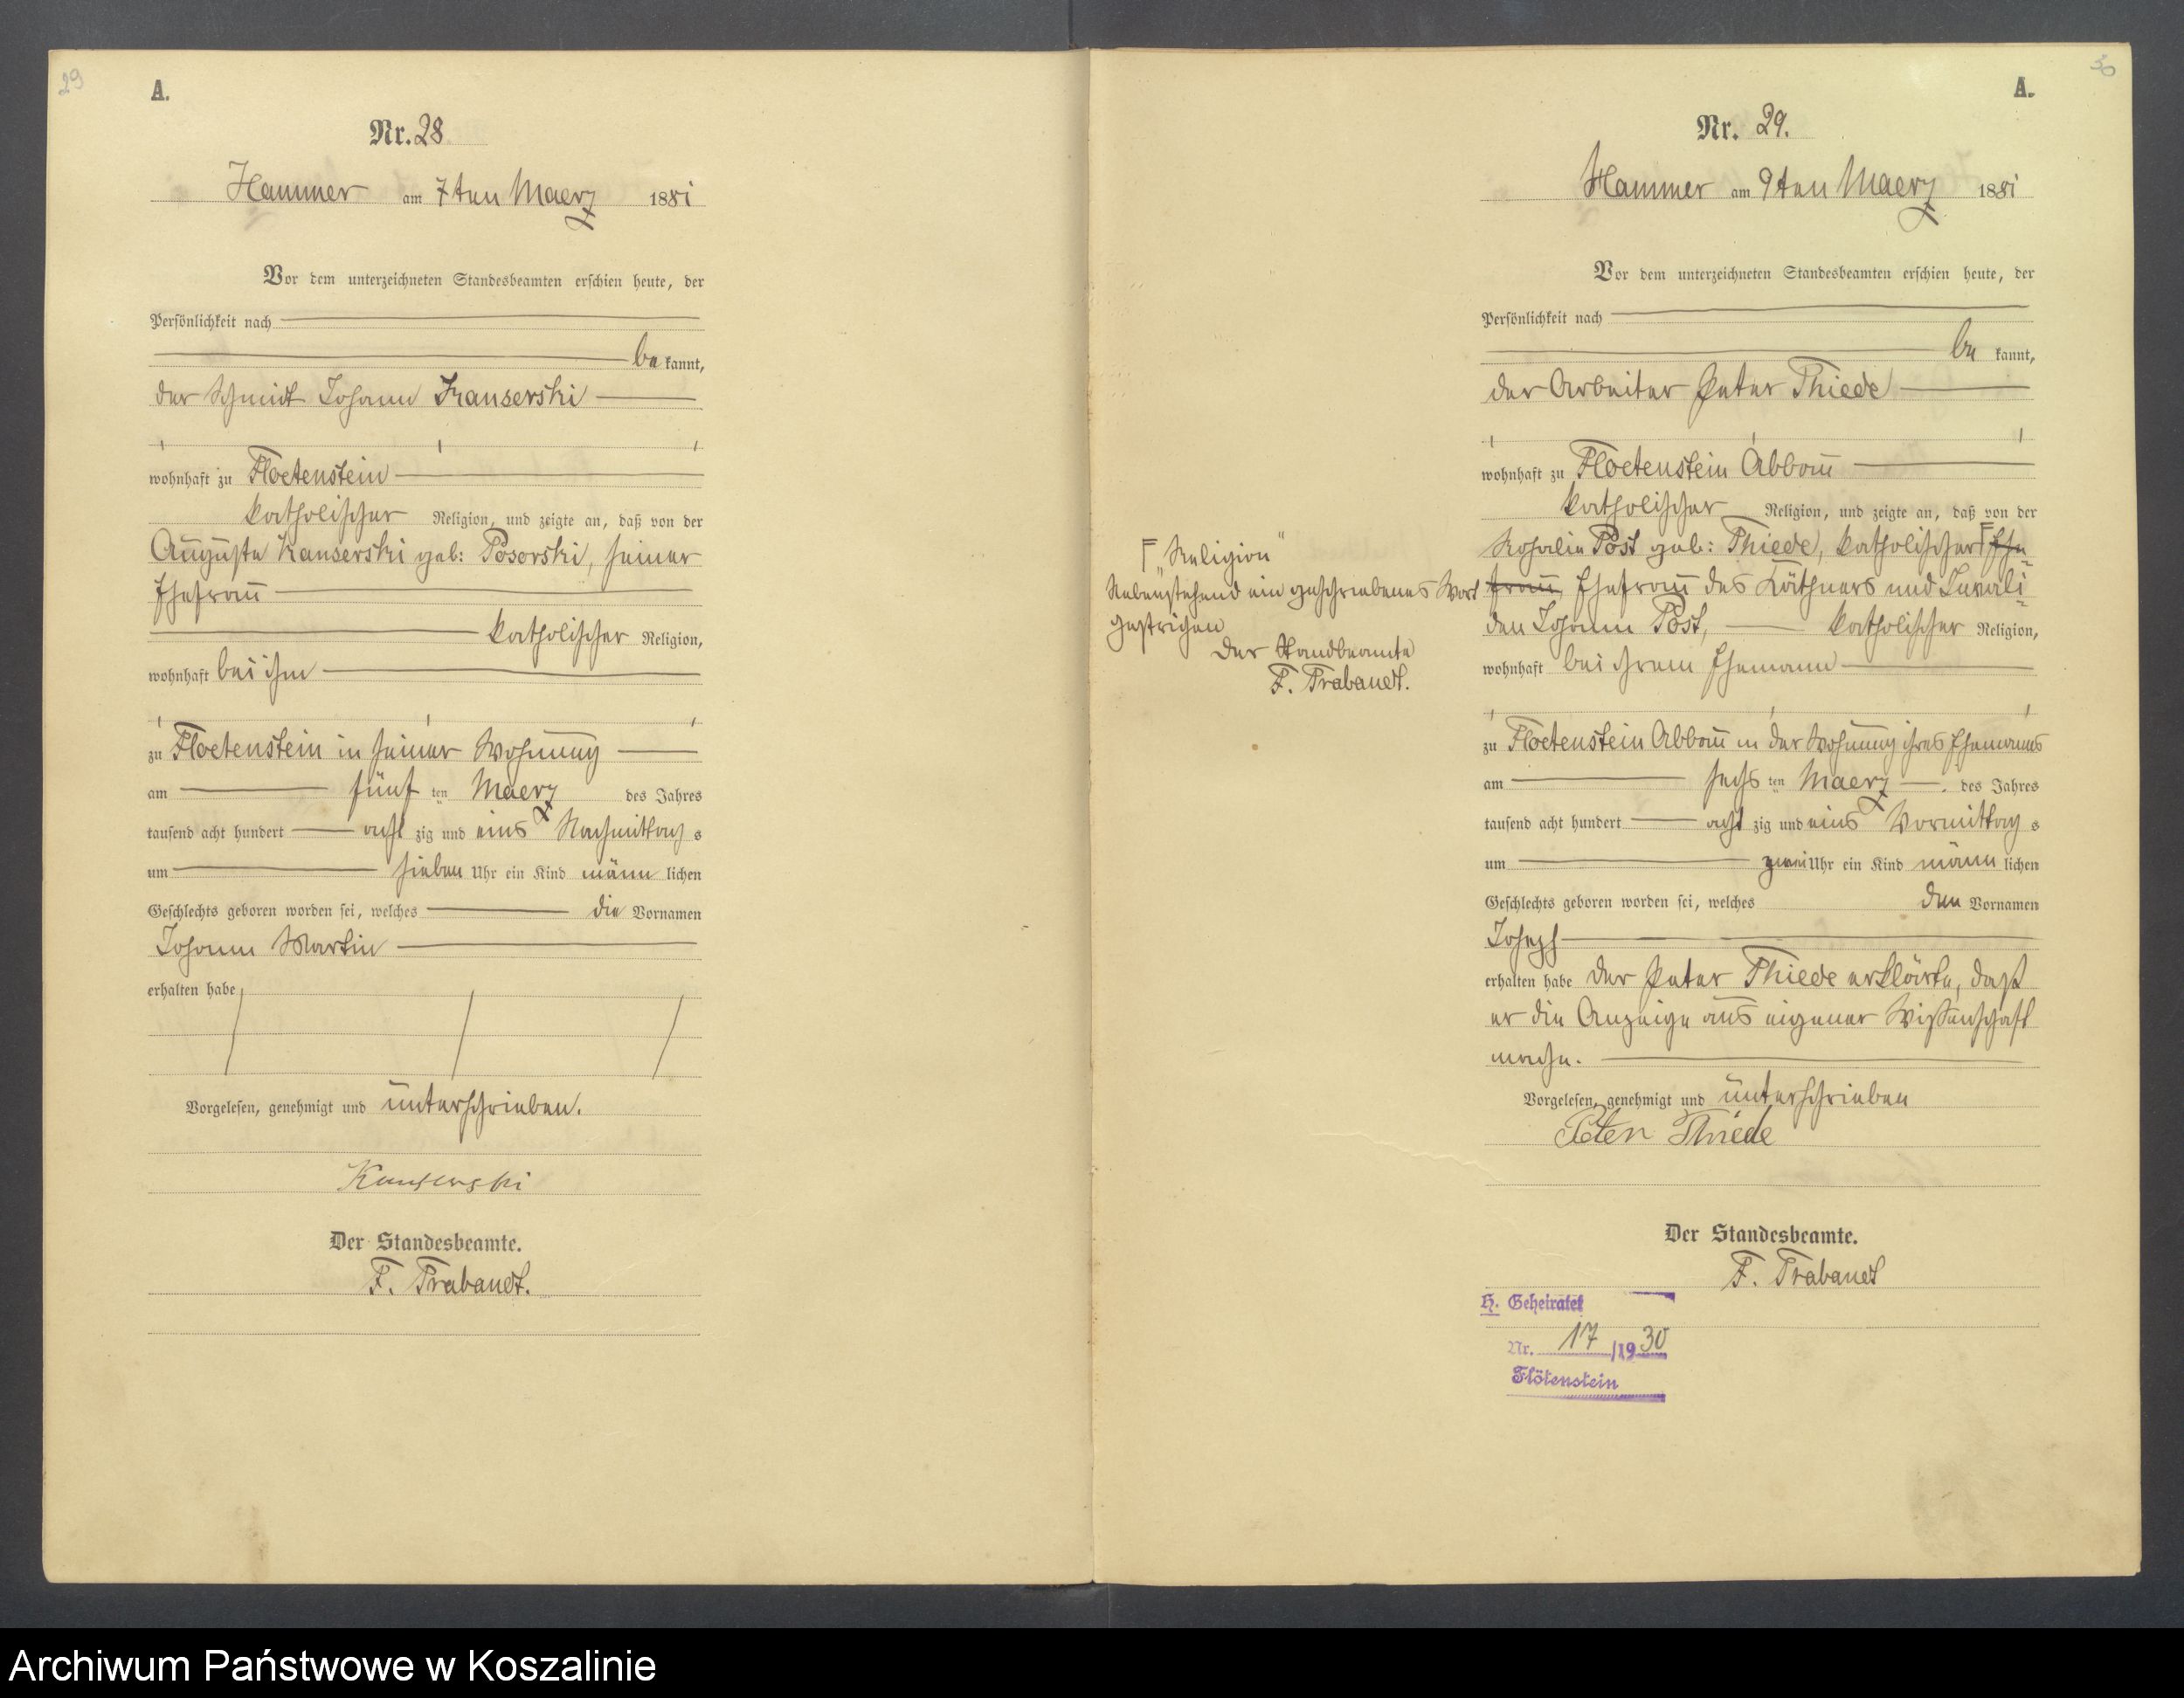 29
A.
Nr. 28.
Hammer am 7ten Maerz 1881
Vor dem unterzeichneten Standesbeamten erschien heute, der
Persönlichkeit nach
be kannt,
der Schmidt Johann Kanserski
wohnhaft zu Floetenstein
katholischer Religion, und zeigte an, daß von der
Auguste Kanserski geb: Posorski, seiner
Ehefrau
katholischer Religion,
wohnhaft bei ihm
zu Floetenstein in seiner Wohnung
am fünf ten Maerz des Jahres
tausend acht hundert acht zig und eins Nachmittag s
um sieben Uhr ein Kind männ lichen
Geschlechts geboren worden sei, welches die Vornamen
Johann Martin
erhalten habe
Vorgelesen, genehmigt und unterschrieben.
Kanserski
Der Standesbeamte.
F. Trabandt.
A.
Nr. 29.
Hammer am 9ten Maerz 1881
Vor dem unterzeichneten Standesbeamten erschien heute, der
Persönlichkeit nach
be kannt,
der Arbeiter Peter Thiede
wohnhaft zu Floetenstein Abbau
katholischer Religion, und zeigte an, daß von der
Rosalie Post geb: Thiede, katholischer F Ehe-
frau, Ehefrau des Käthners und Invali-
den Johann Post, katholischer Religion,
wohnhaft bei ihrem Ehemann
zu Floetenstein Abbau in der Wohnung ihres Ehemanns
am sechs ten Maerz des Jahres
tausend acht hundert acht zig und eins Vormittag s
um zwei Uhr ein Kind männ lichen
Geschlechts geboren worden sei, welches den Vornamen
Joseph
erhalten habe Der Peter Thiede erklärte, daß
er die Anzeige aus eigener Wissenschaft
mache.
Vorgelesen, genehmigt und unterschrieben
Peter Thiede
Der Standesbeamte.
F. Trabandt
F „Religion"
Nebenstehend ein geschriebenes Wort
gestrichen
Der Standbeamte
F. Trabandt.
H. Geheiratet
Nr. 17 /1930
Flötenstein
Archiwum Państwowe w Koszalinie